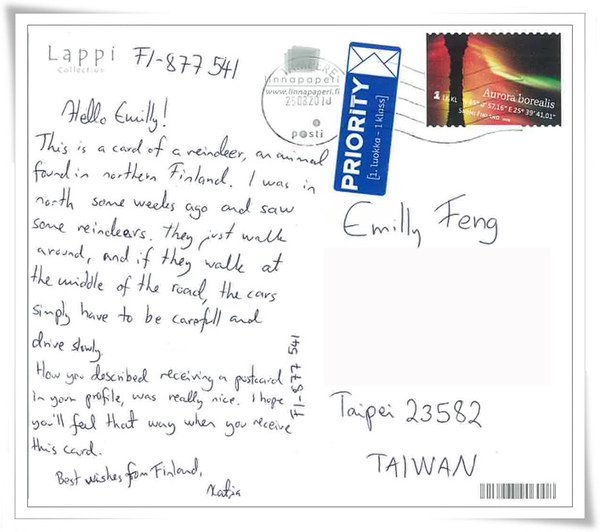 Lappi
Collection
FI-877 541
Hello Emilly!
This is a card of a reindeer, an animal
found in northern Finland. I was in
north some weeks ago and saw
some reindeers. They just walk
around, and if they walk at
the middle of the road, the cars
simply have to be carefull and
drive slowly.
How you described receiving a postcard
in your profile, was really nice. I hope
you'll feel that way when you receive
this card.
Best wishes from Finland,
Katja
FI-877 541
linnapaperi
www.linnapaperi.fi
posti
PRIORITY
[1. luokka - 1 klass]
Aurora borealis
Emilly Feng
Taipei 23582
TAIWAN